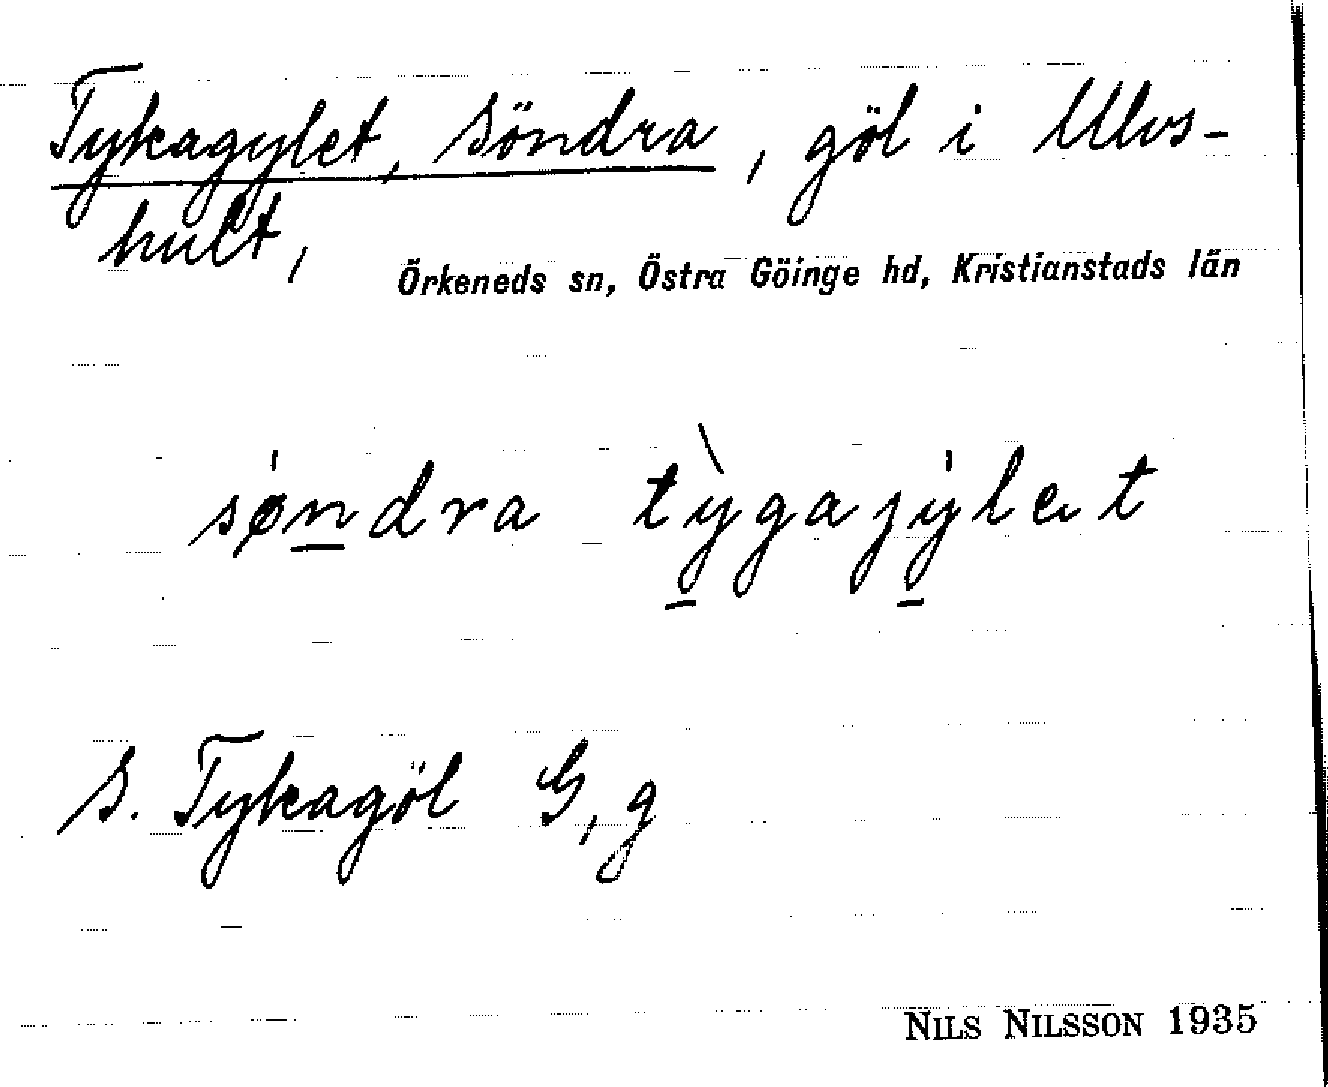 Tykagylet, Söndra, göl i Ulvs-
hult,
Örkeneds sn, Östra Göinge hd, Kristianstads län
søndra tỳgajylet
S. Tykagöl G, g
NILS NILSSON 1935